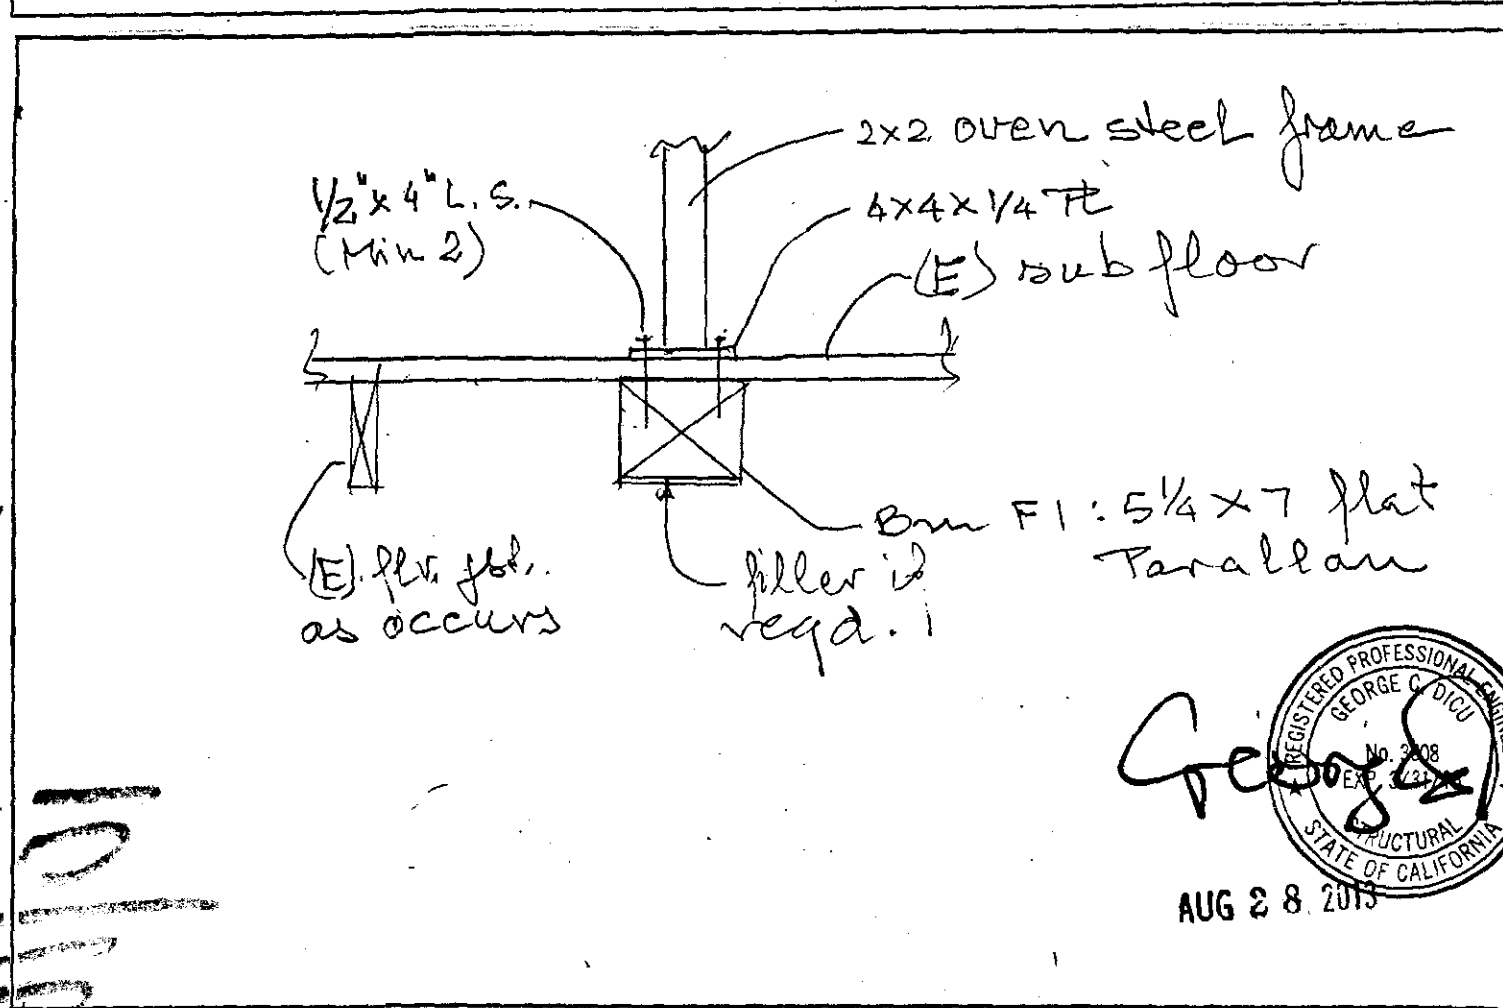 2x2 oven steel frame
1/2" x 4" L.S.
(Min 2)
4x4x1/4 PL
(E) subfloor
Bm F1: 5 1/4 x 7 flat
Parallam
(E) flr. jst.
as occurs
filler if
reqd.
REGISTERED PROFESSIONAL
GEORGE C. DICU
No.
EXP. 3/31/
STRUCTURAL
STATE OF CALIFORNIA
AUG 28 2013